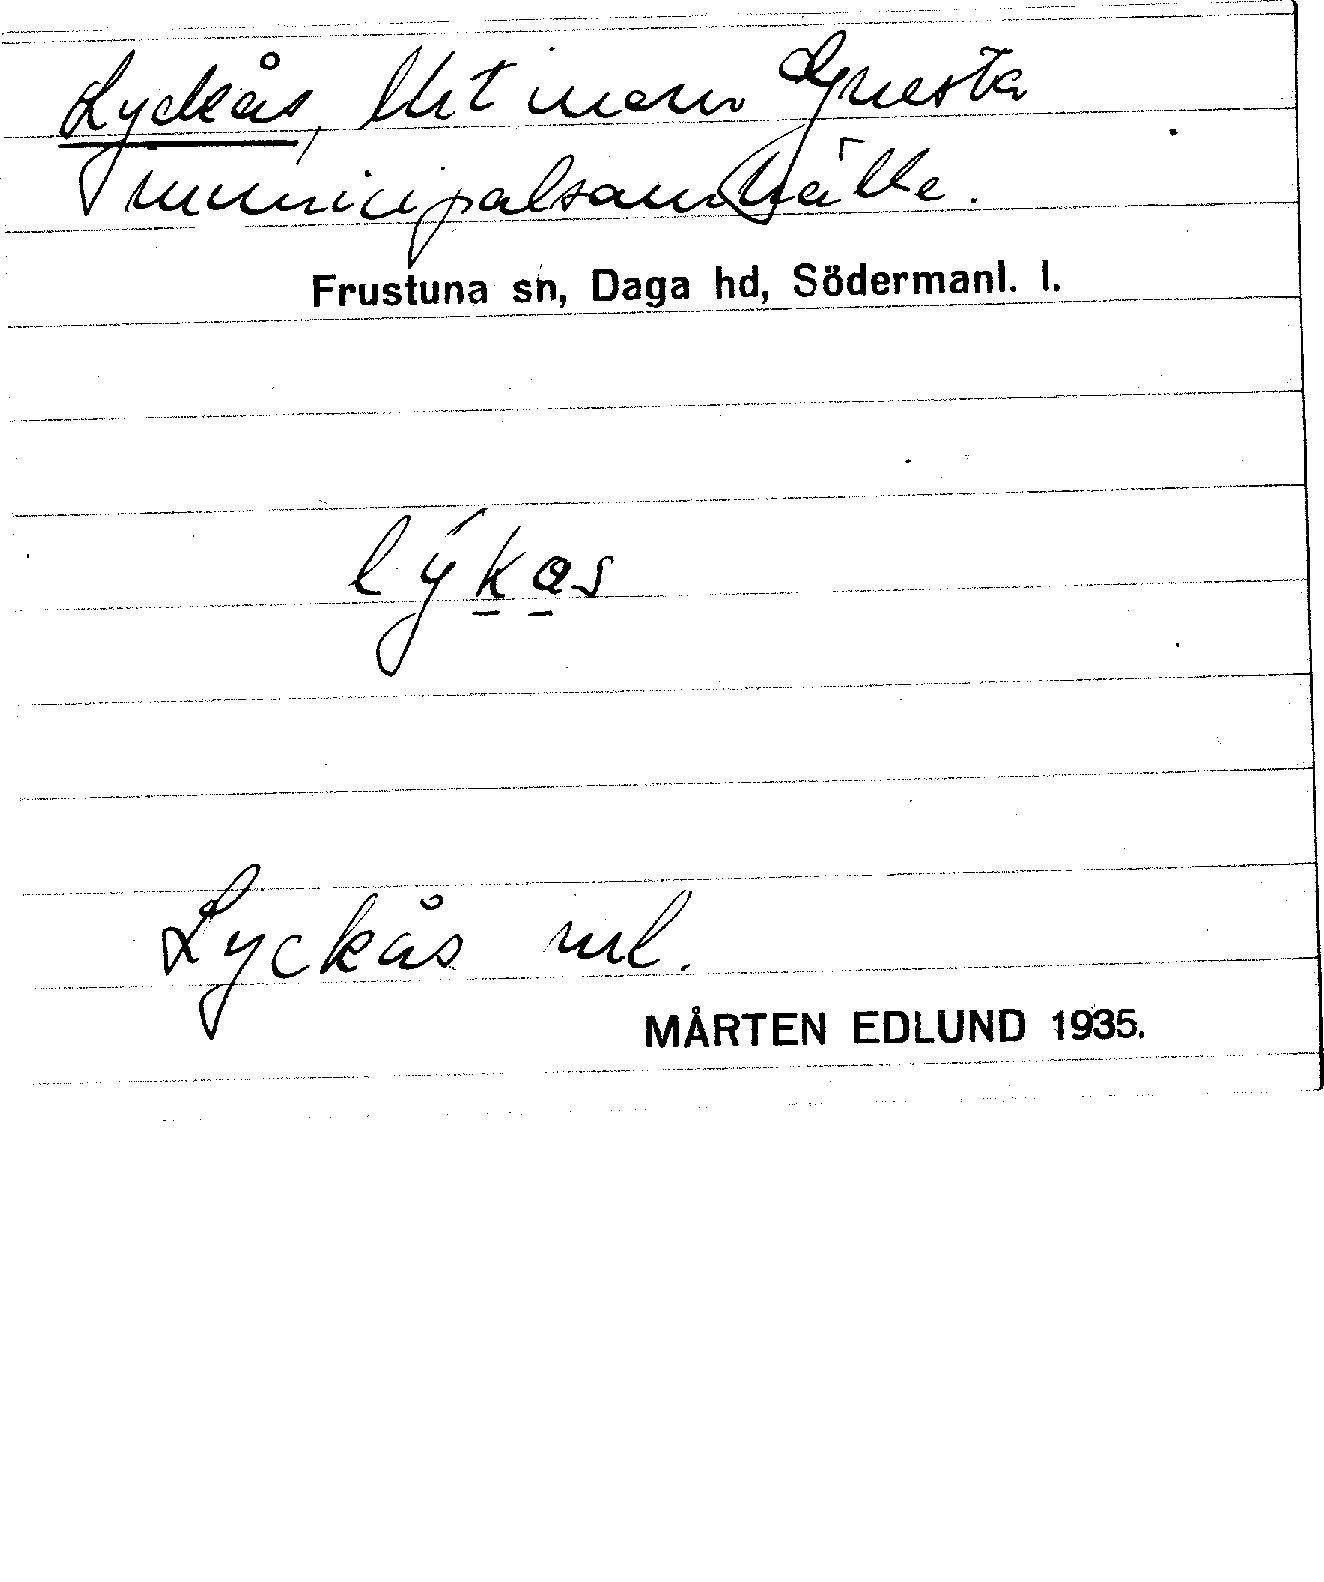 Lyckås, lht inom Gnesta
municipalsamhälle.
Frustuna sn, Daga hd, Södermanl. l.
lýkas
Lyckås ml.
MÅRTEN EDLUND 1935.